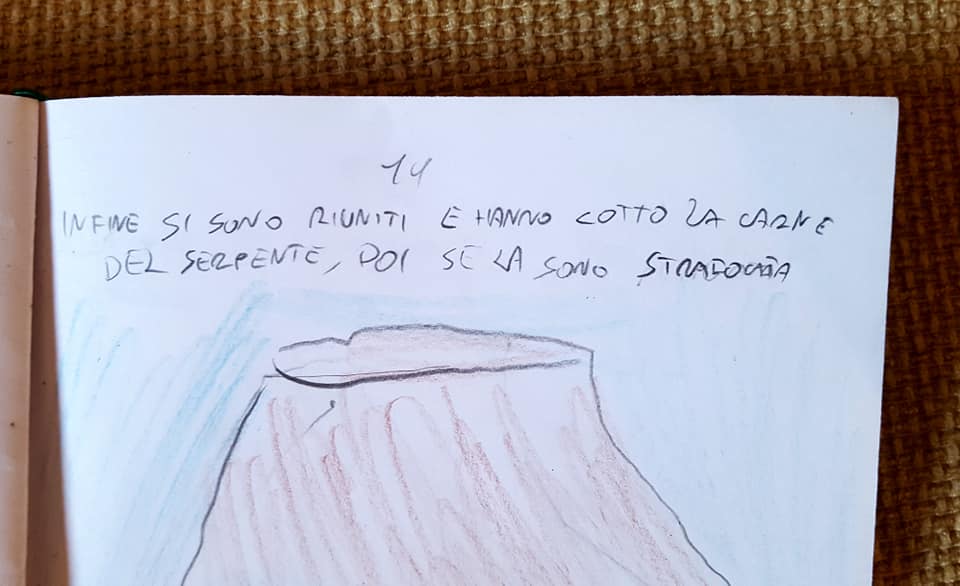 14
INFINE SI SONO RIUNITI E HANNO COTTO LA CARNE
DEL SERPENTE, POI SE LA SONO